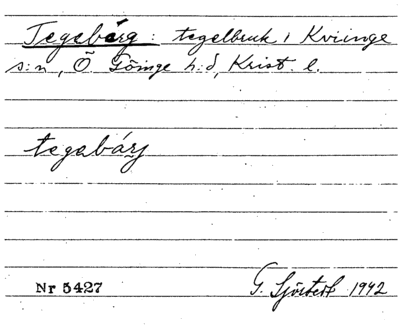 Tegebärg: tegelbruk i Kviinge
s:n, Ö Göinge h:d, Krist. l.
tegabárj
Nr 5427 G. Sjöstedt 1942